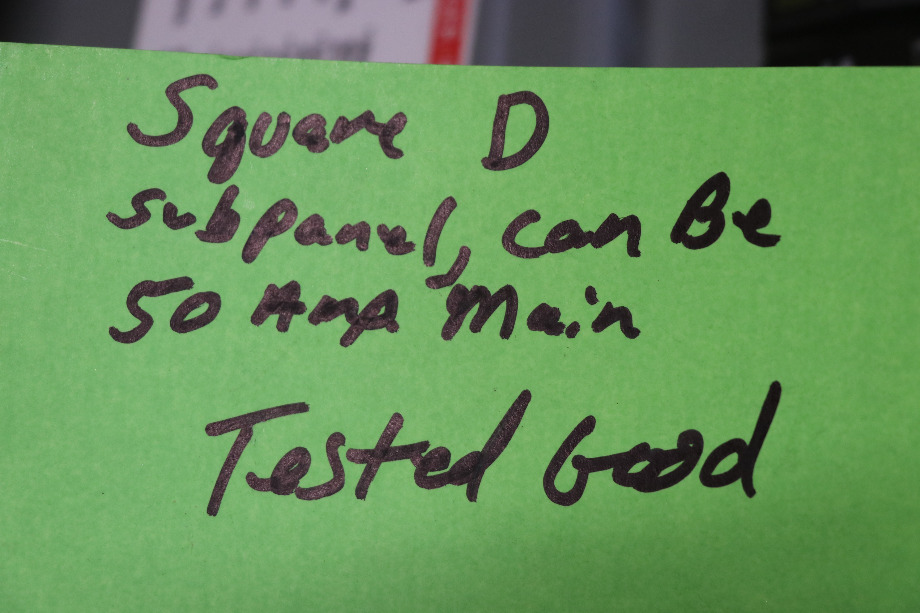 Square D
subpanel, can Be
50 Amp Main
Tested Good